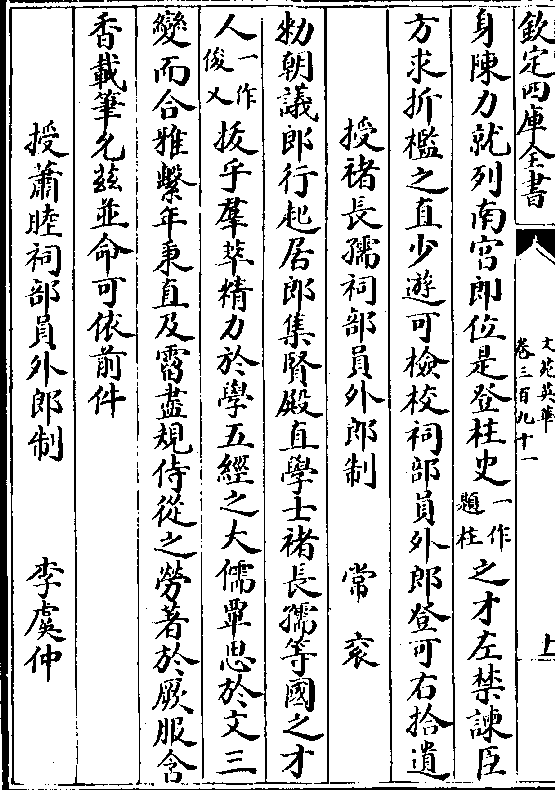 欽定四庫全書
文苑英華
卷三百九十一
上
身陳力就列南宫郎位是登柱史一作題柱之才左禁諫臣
方求折檻之直少遊可檢校祠部員外郎登可右拾遺
授褚長孺祠部員外郎制 常衮
勑朝議郎行起居郎集賢殿直學士褚長孺等國之才
人一作俊乂拔乎羣萃精力於學五經之大儒覃思於文三
變而合雅繫年秉直及霤盡規侍從之勞著於厥服含
香載筆允兹並命可依前件
授蕭睦祠部員外郎制 李虞仲